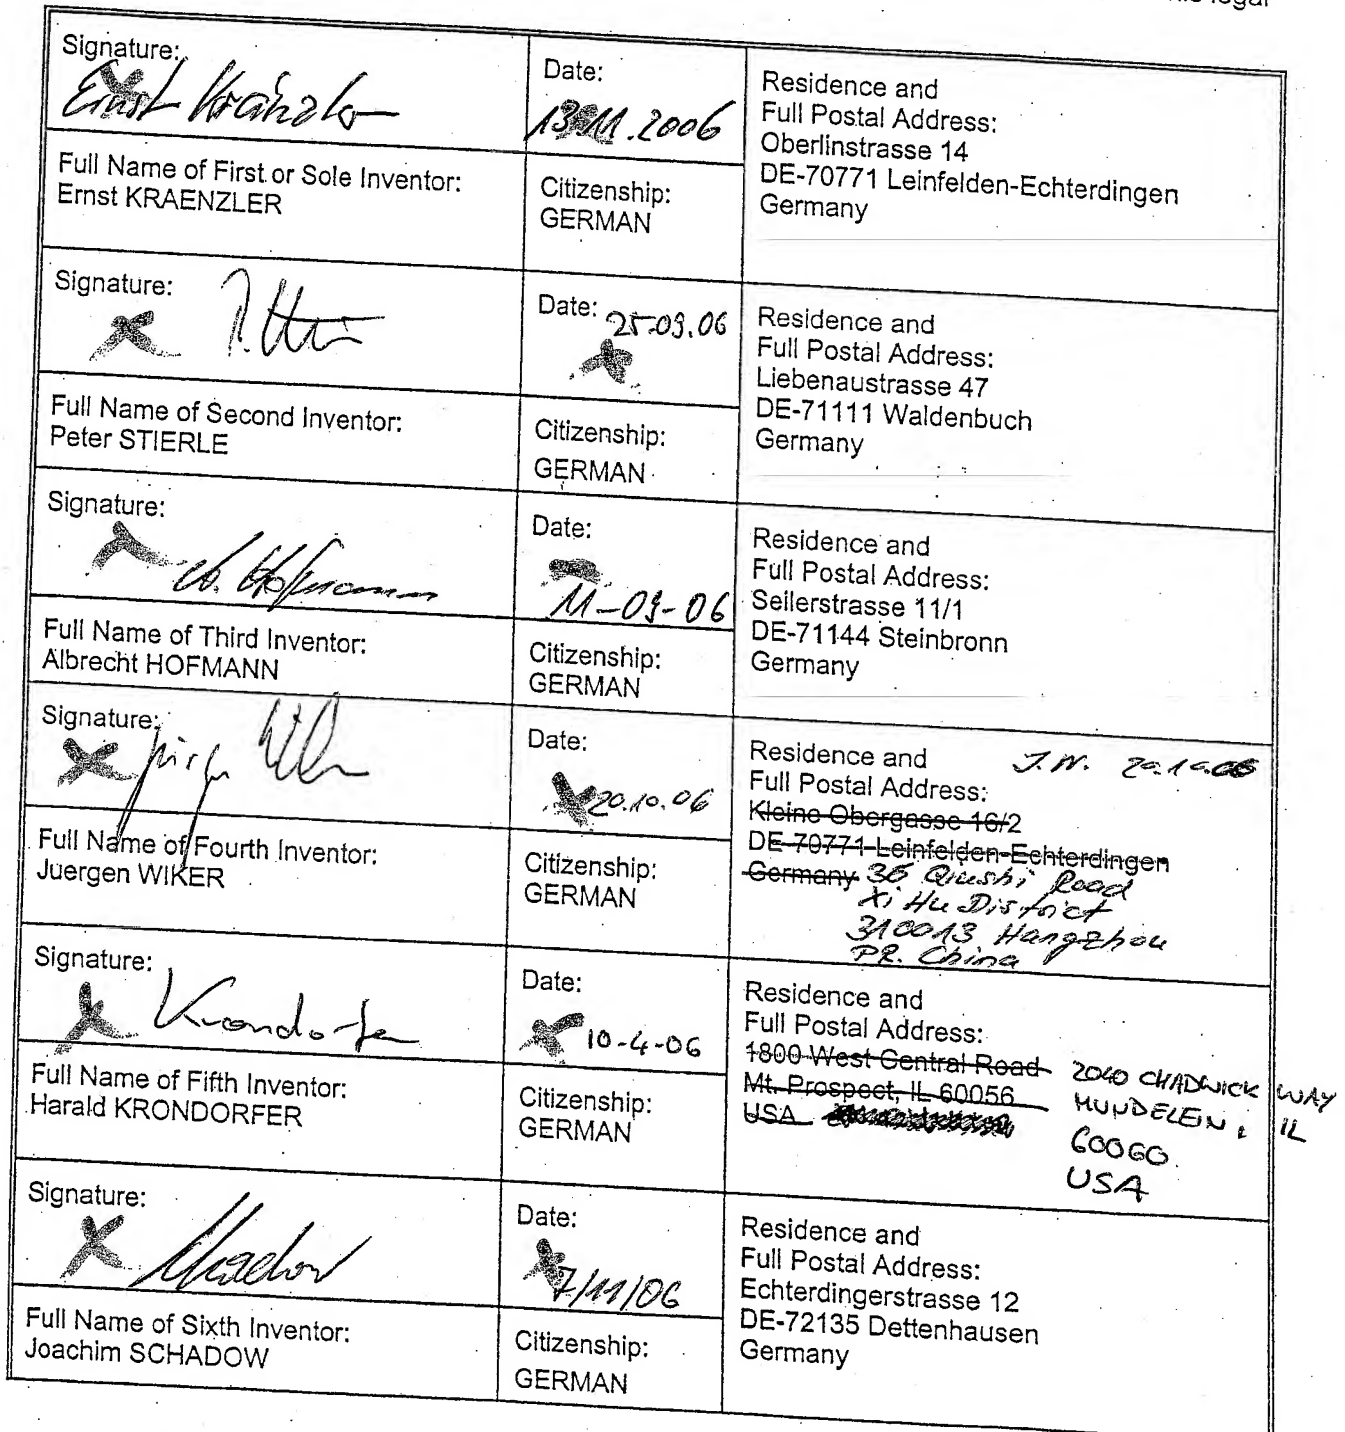 legal
Signature:
Ernst Kränzler
Date:
13.11.2006
Residence and
Full Postal Address:
Oberlinstrasse 14
DE-70771 Leinfelden-Echterdingen
Germany
Full Name of First or Sole Inventor:
Ernst KRAENZLER
Citizenship:
GERMAN
Signature:
Date: 25.09.06
Residence and
Full Postal Address:
Liebenaustrasse 47
DE-71111 Waldenbuch
Germany
Full Name of Second Inventor:
Peter STIERLE
Citizenship:
GERMAN
Signature:
A. Hofmann
Date:
11-09-06
Residence and
Full Postal Address:
Seilerstrasse 11/1
DE-71144 Steinbronn
Germany
Full Name of Third Inventor:
Albrecht HOFMANN
Citizenship:
GERMAN
Signature:
Date:
20.10.06
Residence and J.W. 20.10.06
Full Postal Address:
Kleine Obergasse 16/2
DE-70771 Leinfelden-Echterdingen
Germany 36 Qiushi Road
Xi Hu District
310013 Hangzhou
PR. China
Full Name of Fourth Inventor:
Juergen WIKER
Citizenship:
GERMAN
Signature:
Krondorfer
Date:
10-4-06
Residence and
Full Postal Address:
1800 West Central Road
Mt. Prospect, IL 60056
USA
2040 CHADWICK WAY
MUNDELEIN, IL
60060
USA
Full Name of Fifth Inventor:
Harald KRONDORFER
Citizenship:
GERMAN
Signature:
Schadow
Date:
7/11/06
Residence and
Full Postal Address:
Echterdingerstrasse 12
DE-72135 Dettenhausen
Germany
Full Name of Sixth Inventor:
Joachim SCHADOW
Citizenship:
GERMAN